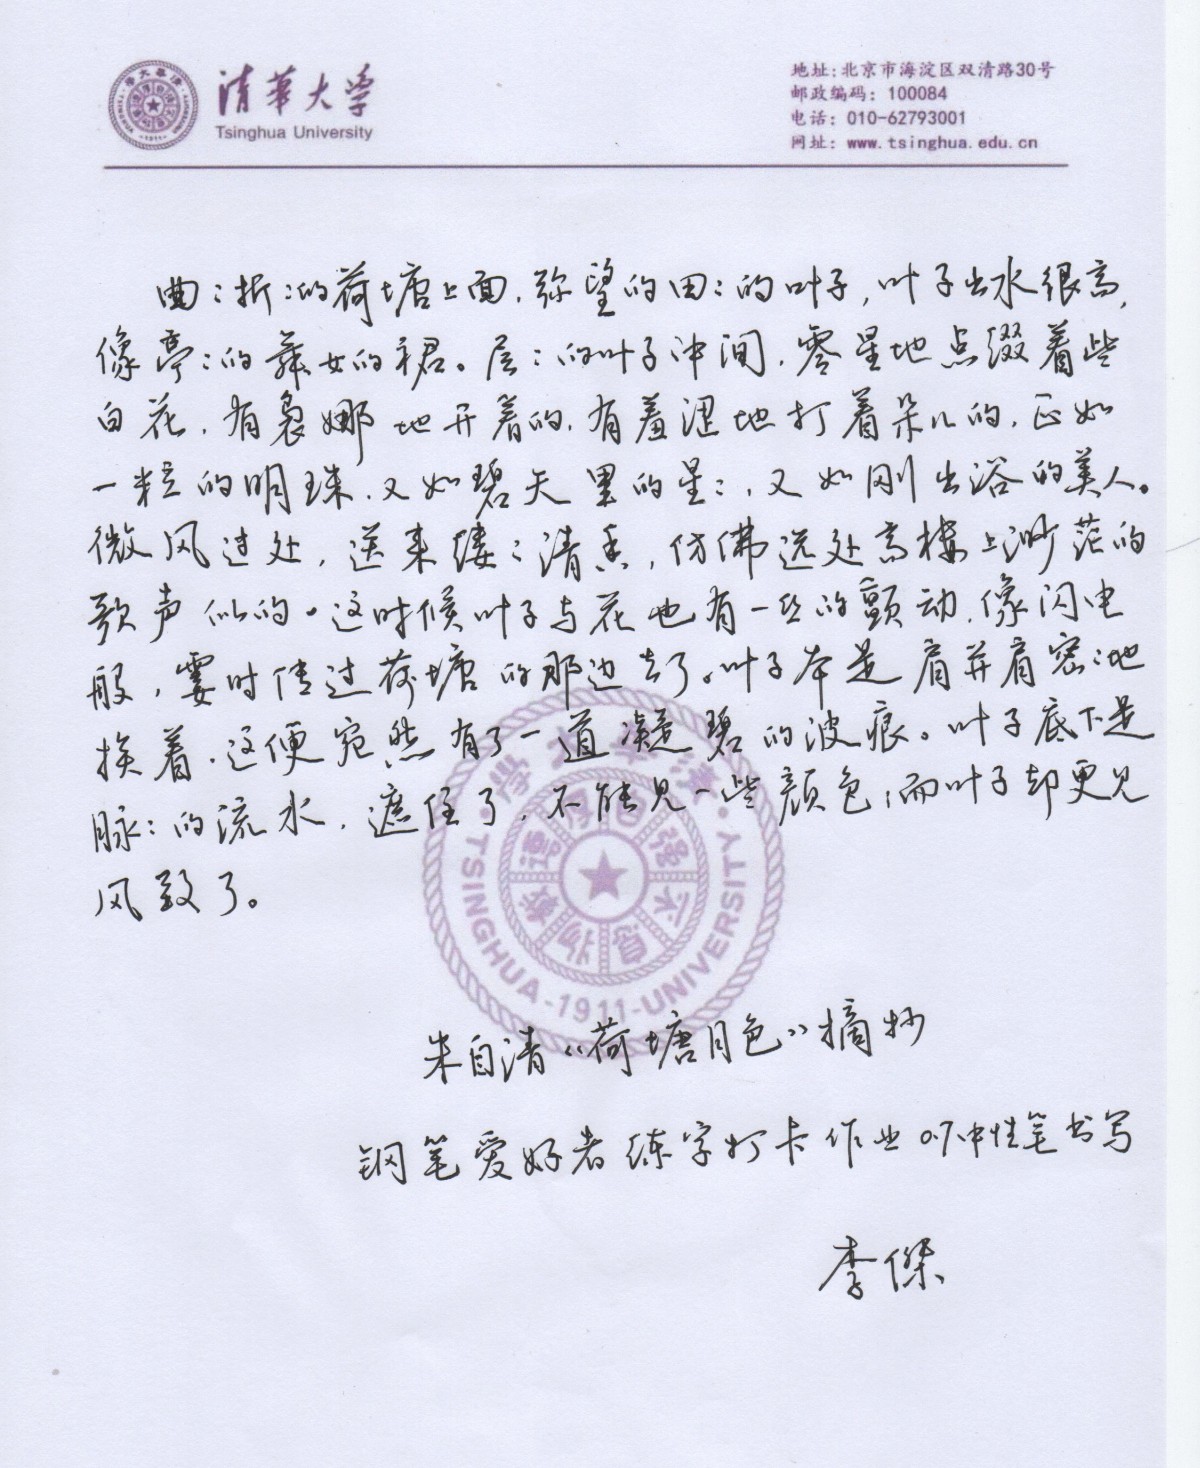 清华大学
Tsinghua University
地址:北京市海淀区双清路30号
邮政编码：100084
电话：010-62793001
网址：www.tsinghua.edu.cn
曲:折:的荷塘上面,弥望的田:的叶子,叶子出水很高,
像亭:的舞女的裙。层:的叶子中间,零星地点缀着些
白花,有袅娜地开着的,有羞涩地打着朵儿的,正如
一粒的明珠,又如碧天里的星:,又如刚出浴的美人。
微风过处,送来缕:清香,仿佛远处高楼上渺茫的
歌声似的。这时候叶子与花也有一丝的颤动,像闪电
般,霎时传过荷塘的那边去了。叶子本是肩并肩密:地
挨着,这便宛然有了一道凝碧的波痕。叶子底下是
脉:的流水,遮住了,不能见一些颜色,而叶子却更见
风致了。
朱自清《荷塘月色》摘抄
钢笔爱好者练字打卡作业 0.7中性笔书写
李傑
TSINGHUA-1911-UNIVERSITY
自强不息